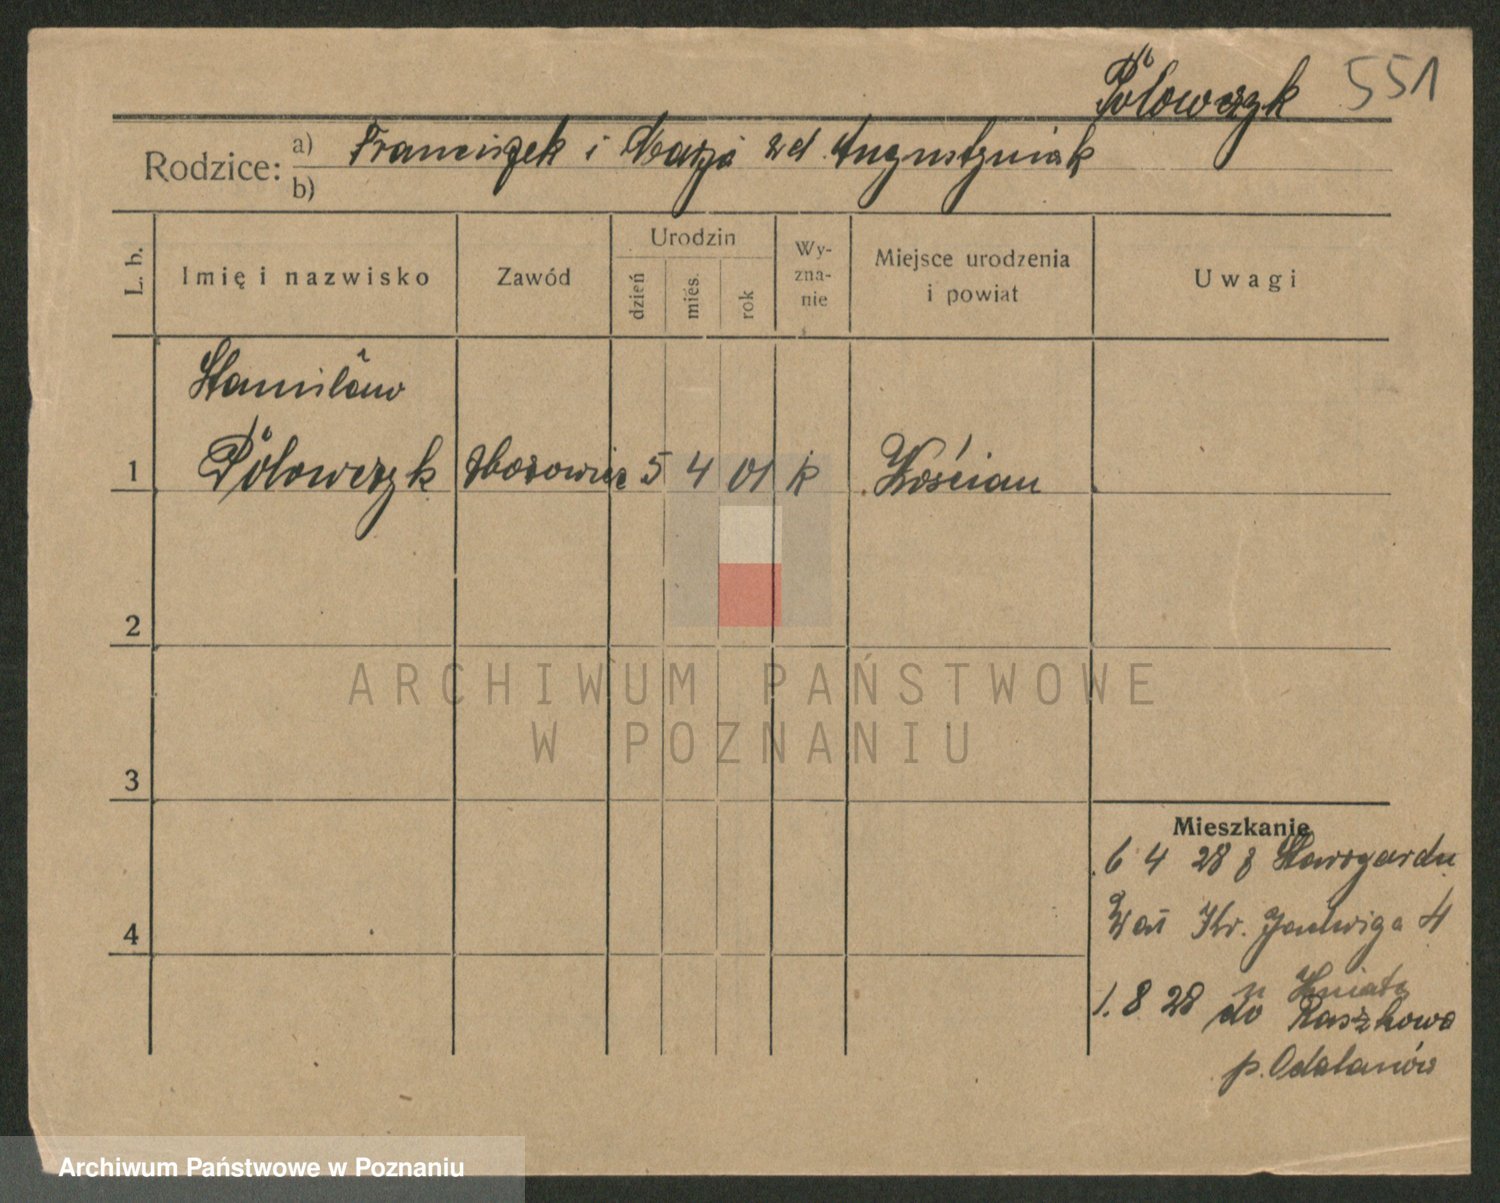 Pólowczyk 551
Rodzice: a) Franciszek i Marja zd. Augustyniak
b)
L. b.
Imię i nazwisko
Zawód
Urodzin
dzień
mieś.
rok
Wy-
zna-
nie
Miejsce urodzenia
i powiat
Uwagi
Stanisław
1 Pólowczyk 5 4 01 k Kościan
2
3
4
Mieszkanie
6 4 28 z Starogardu
Kr. Jadwiga 4
1. 8 28 do Raszkowa
p. Odolanów
ARCHIWUM PAŃSTWOWE
W POZNANIU
Archiwum Państwowe w Poznaniu